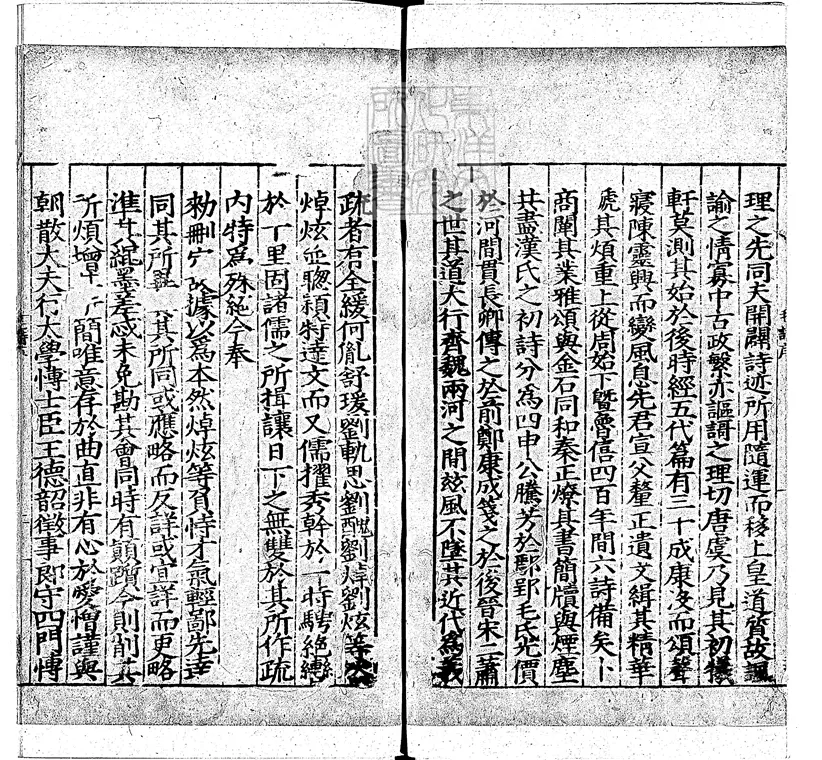 理之先同夫開闢詩迹所用隨運而移上皇道質故諷
諭之情寡中古政繁亦謳謌之理切唐虞乃見其初犧
軒莫測其始於後時經五代篇有三千成康沒而頌聲
寢陳靈興而變風息先君宣父釐正遺文緝其精華
褫其煩重上從周始下曁魯僖四百年間六詩備矣卜
商闡其業雅頌與金石同和秦正燎其書簡牘與煙塵
共盡漢氏之初詩分爲四申公騰芳於鄢郢毛氏光價
於河間貫長卿傳之於前鄭康成箋之於後晉宋二蕭
之世其道大行齊魏兩河之間玆風不墜其近代爲義
疏者有全緩何胤舒瑗劉軌思劉醜劉焯劉炫等然
焯炫並聦穎特達文而又儒擢秀幹於一時騁絕轡
於千里固諸儒之所揖讓日下之無雙於其所作疏
內特爲殊絕今奉
勑刪定故據以爲本然焯炫等負恃才氣輕鄙先達
同其所異其所同或應略而反詳或宜詳而更略
準其繩墨差忒未免勘其會同時有顛躓今則削其
所煩增簡唯意存於曲直非有心於愛憎謹與
朝散大夫行太學博士臣王德韶徵事郎守四門博